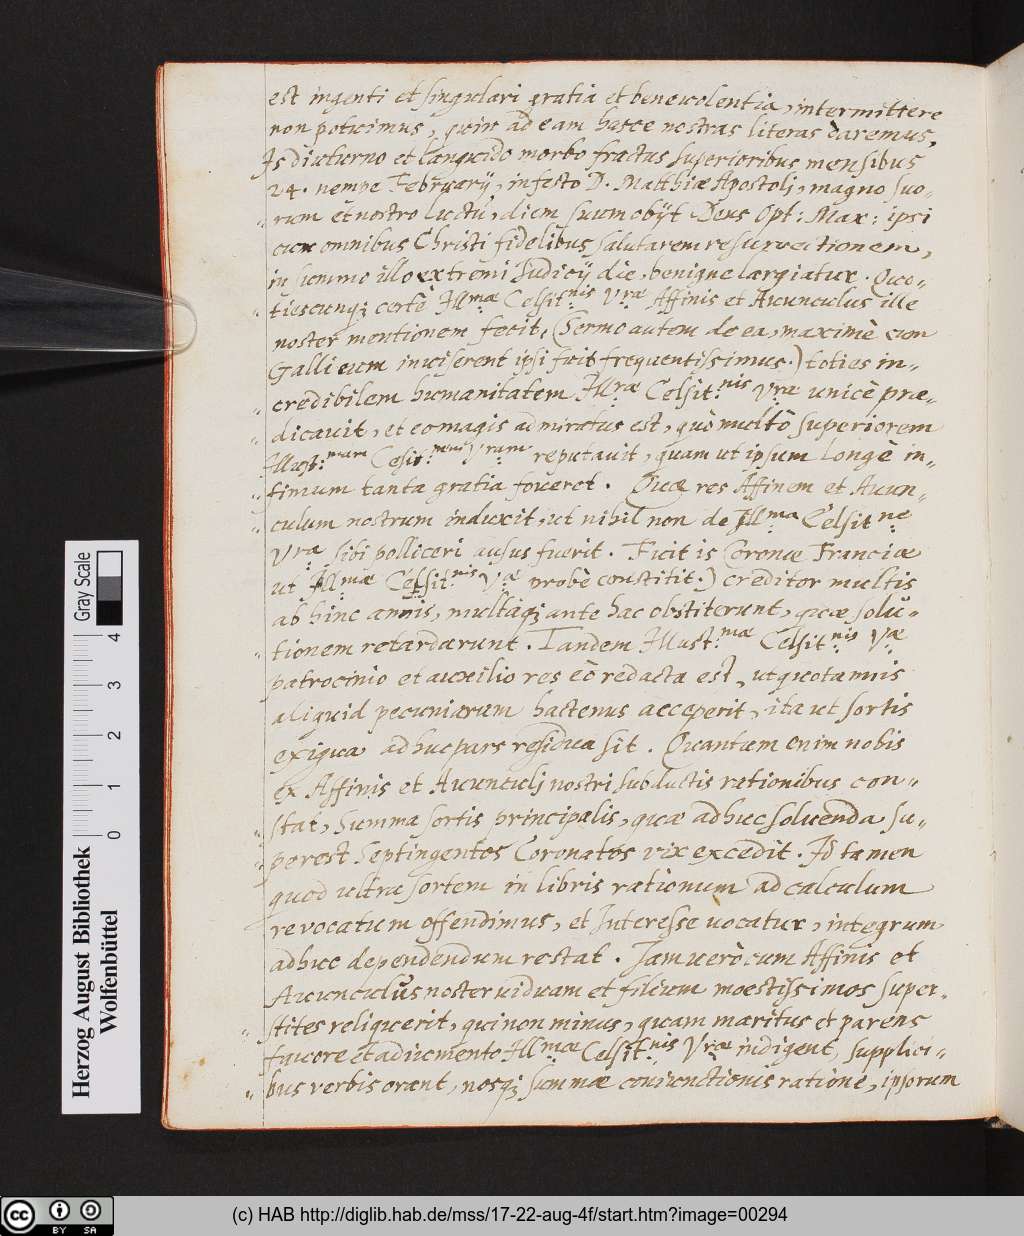 est ingenti et singulari gratia et beneuolentia, intermittere
non potuimus, quin ad eam hasce nostras literas daremus.
Is diuturno et languido morbo fractus superioribus mensibus
24. nempe Februarij, in festo D. Matthiæ Apostolj, magno suo-
rum et nostro luctu, diem suum obijt Deus Opt: Max: ipsi
cum omnibus Christi fidelibus salutarem resurrectionem,
in summo illo extremi Iudicij die, benigne largiatur. Quo-
tiescunq; certè Illmæ Celsitnis Vræ Affinis et Auunculus ille
noster mentionem fecit, (Sermo autem de ea, maximè cum
Galli eum inuiserent ipsi fuit frequentissimus.) toties in-
credibilem humanitatem Illræ Celsitnis Vræ unicè præ-
dicauit, et eo magis admiratus est, quò multò superiorem
Illust:mam Celsit:nem Vram reputauit, quam ut ipsum longè in-
fimum tanta gratia foueret. Quæ res Affinem et Auun-
culum nostrum induxit, ut nihil non de Illma Celsitne
Vra sibi polliceri ausus fuerit. Fuit is Coronæ Franciæ
ut Illmæ Celsit:nis Væ probè constitit.) creditor multis
ab hinc annis, multaq; ante hac obstiterunt, quæ solu-
tionem retardarunt. Tandem Illust:mæ Celsitnis Væ
patrocinio et auxilio res eò redacta est, ut quotannis
aliquid pecuniarum hactenus acceperit, ita ut sortis
exigua adhuc pars residua sit. Quantum enim nobis
ex Affinis et Auunculj nostri subductis rationibus con-
stat, Summa sortis principalis, quæ adhuc soluenda su-
perest Septingentos Coronatos vix excedit. Id tamen
quod ultra sortem in libris rationum ad calculum
reuocatum offendimus, et Interesse uocatur, integrum
adhuc dependendum restat. Iam uerò cum Affinis et
Auunculus noster uiduam et filium moestissimos super-
stites reliquerit, qui non minus, quam maritus et parens
fauore et adiumento Illmæ Celsit:nis Vræ indigent, supplici-
bus verbis orant, nosq; summæ coniunctionis ratione, ipsorum
Gray Scale
0 1 2 3 4
Herzog August Bibliothek
Wolfenbüttel
cc BY SA
(c) HAB http://diglib.hab.de/mss/17-22-aug-4f/start.htm?image=00294